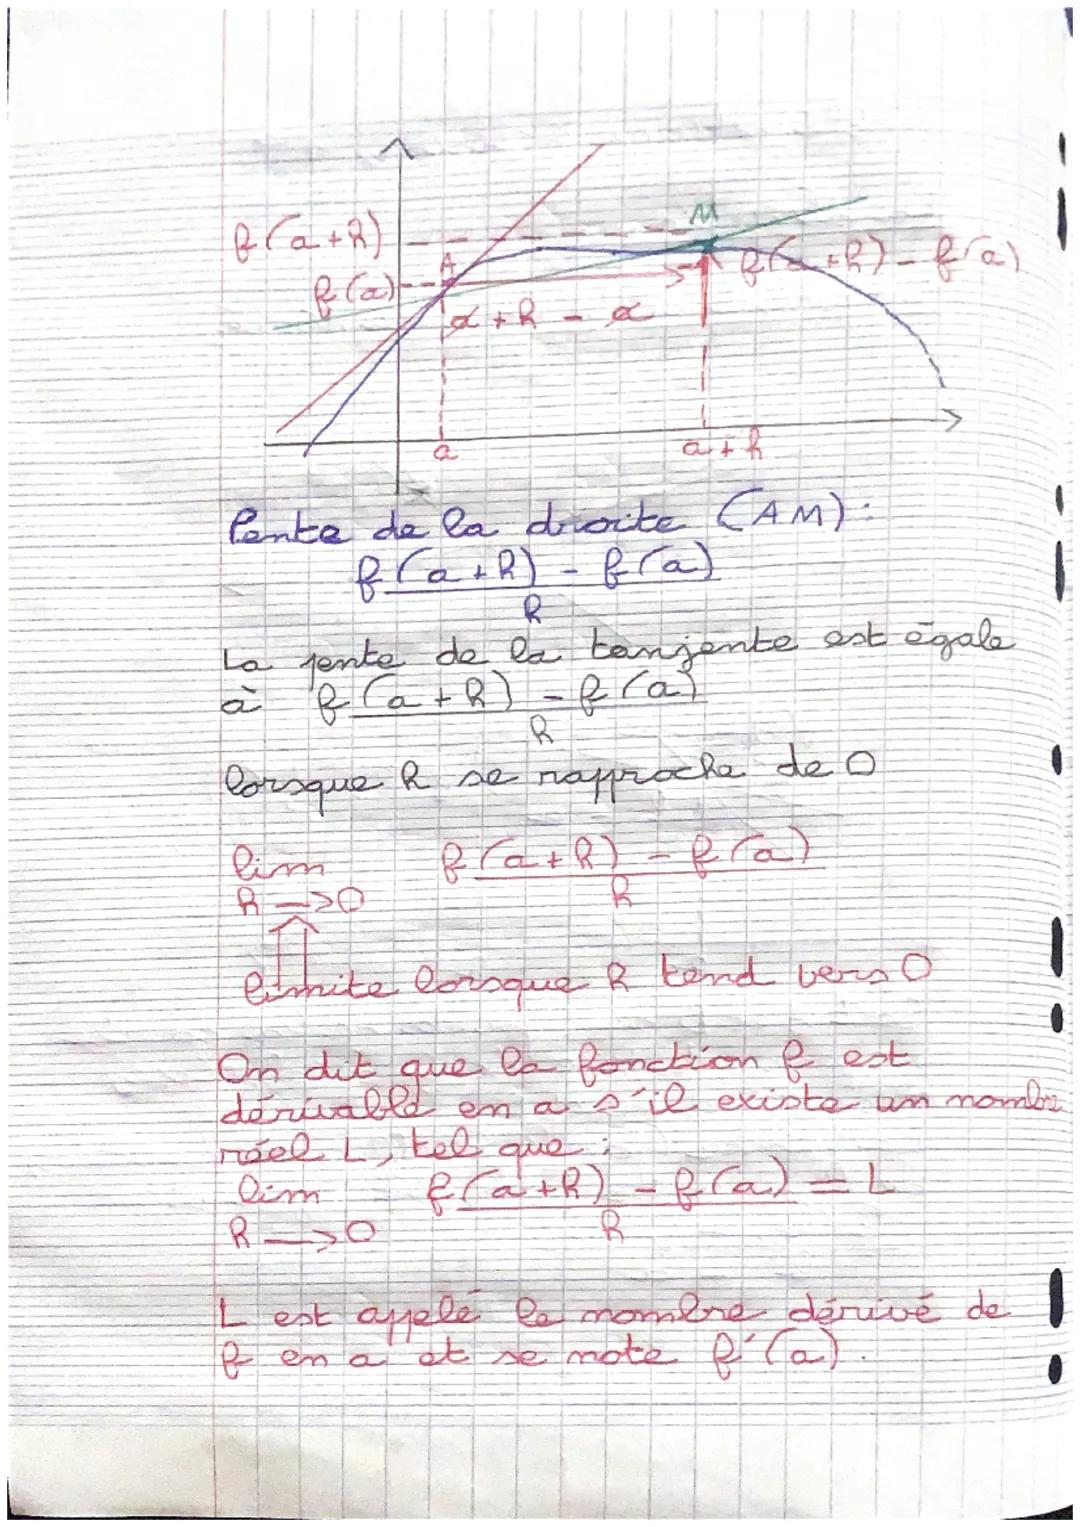 M
f(a+h)
A
f(a+h) - f(a)
f(a)
a+h - a
a
a+h
Pente de la droite (AM):
f(a+h) - f(a)
h
La pente de la tanjente est égale
à f(a+h) - f(a)
h
lorsque h se rapproche de 0
lim f(a+h) - f(a)
h → 0 h
limite lorsque h tend vers 0
On dit que la fonction f est
dérivable en a s'il existe un nombre
réel L, tel que :
lim f(a+h) - f(a) = L
h → 0 h
L est appelé le nombre dérivé de
f en a et se note f'(a).